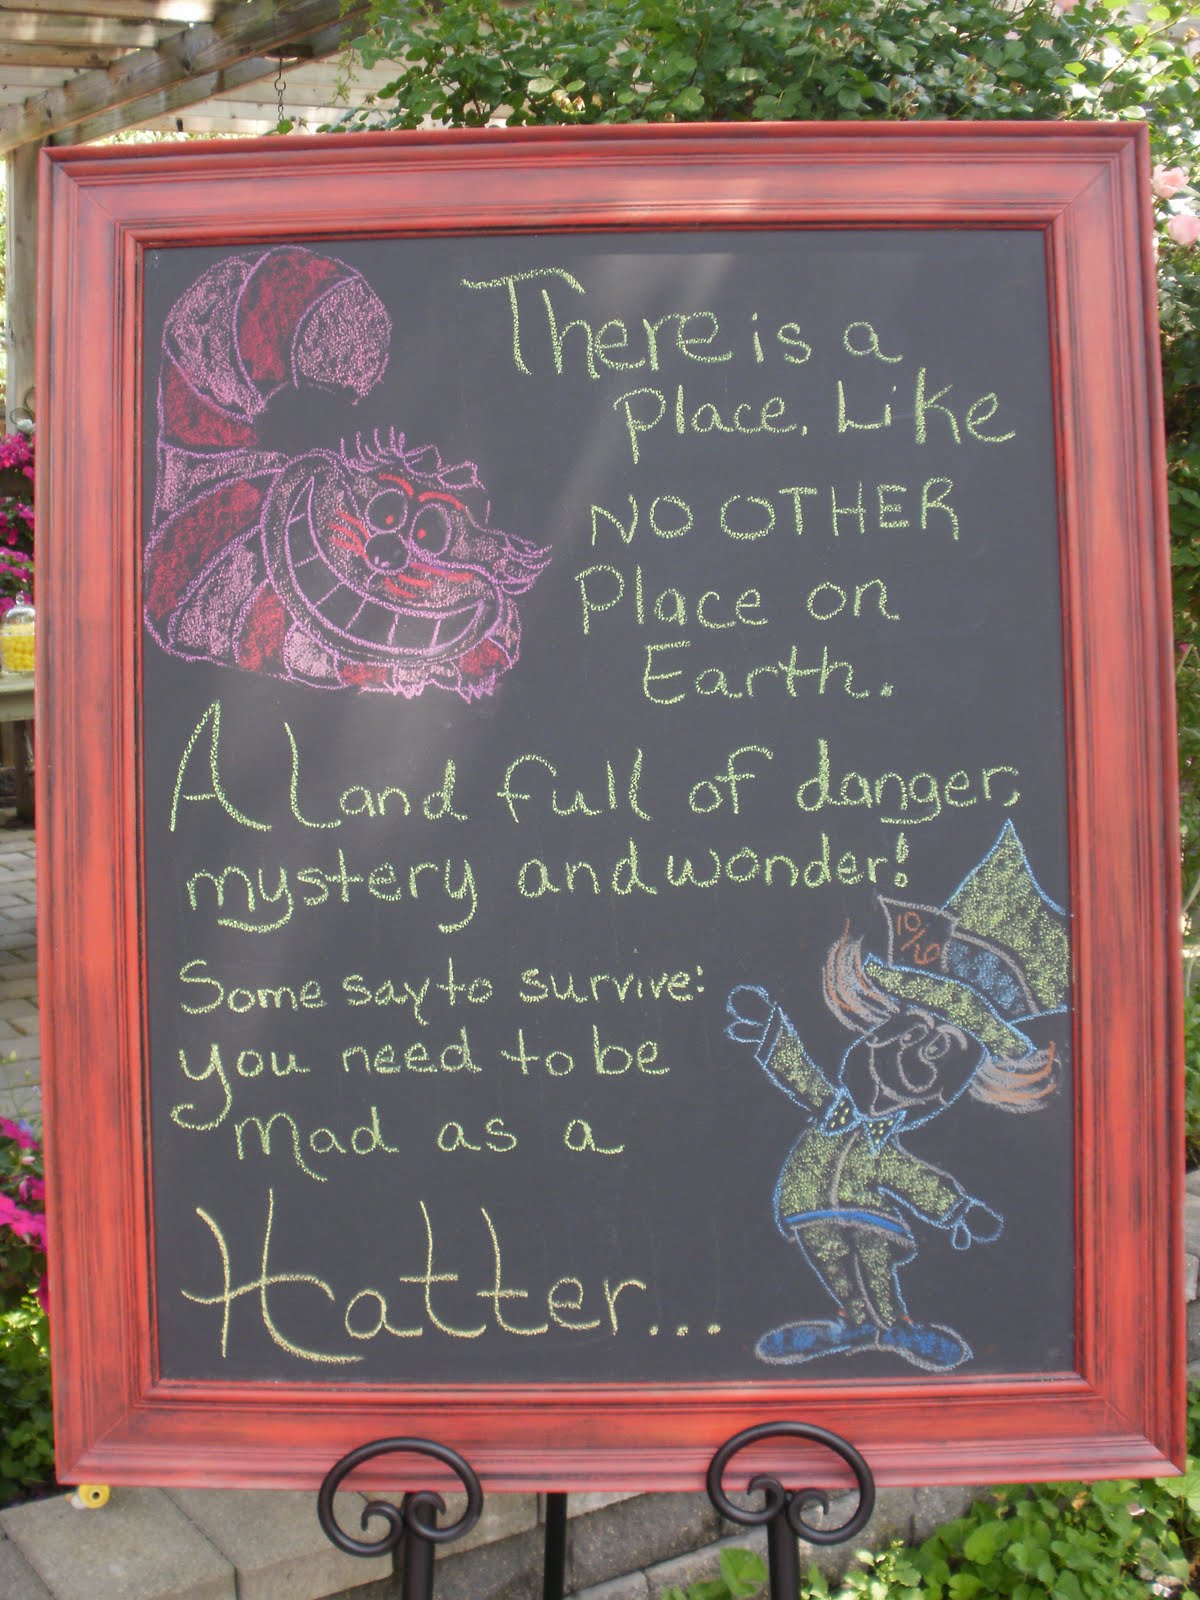 There is a
place. Like
NO OTHER
Place on
Earth.
A Land full of danger,
mystery and wonder!
10/6
Some say to survive:
you need to be
Mad as a
Hatter...